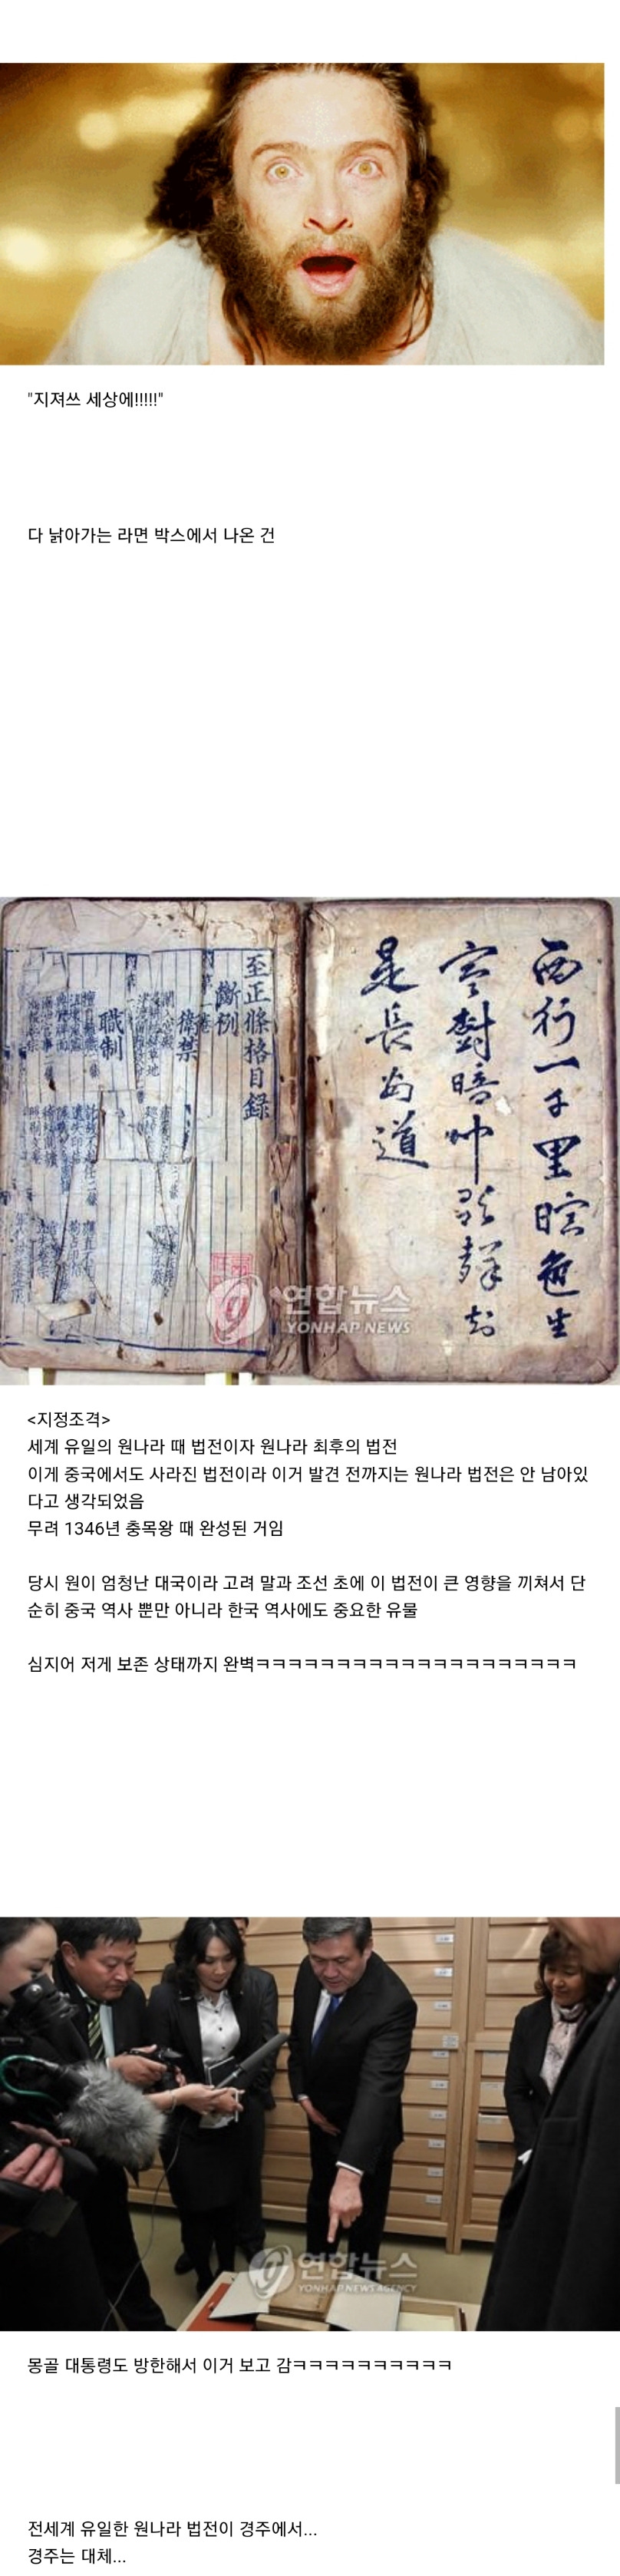 "지져쓰 세상에!!!!!"
다 낡아가는 라면 박스에서 나온 건
西行一千里暝色生
是長安道
至正條格目錄
斷例
衛禁
職制
연합뉴스
YONHAP NEWS
<지정조격>
세계 유일의 원나라 때 법전이자 원나라 최후의 법전
이게 중국에서도 사라진 법전이라 이거 발견 전까지는 원나라 법전은 안 남아있
다고 생각되었음
무려 1346년 충목왕 때 완성된 거임
당시 원이 엄청난 대국이라 고려 말과 조선 초에 이 법전이 큰 영향을 끼쳐서 단
순히 중국 역사 뿐만 아니라 한국 역사에도 중요한 유물
심지어 저게 보존 상태까지 완벽ㅋㅋㅋㅋㅋㅋㅋㅋㅋㅋㅋㅋㅋㅋㅋㅋㅋㅋㅋㅋ
연합뉴스
YONHAP NEWS AGENCY
몽골 대통령도 방한해서 이거 보고 감ㅋㅋㅋㅋㅋㅋㅋㅋㅋㅋ
전세계 유일한 원나라 법전이 경주에서...
경주는 대체...